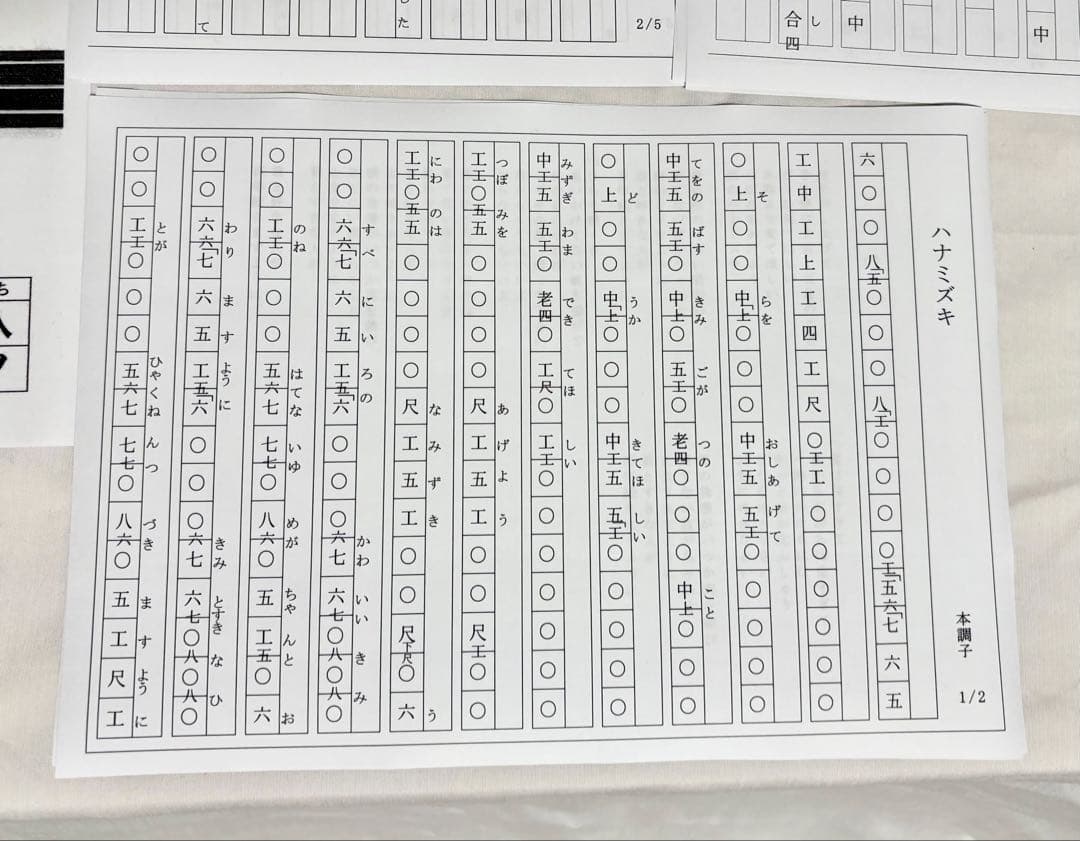 2/5
て
した
中
中
し
合四
ハナミズキ
本調子
1/2
六○○八「五○○○八「工○○○工「五六「七六五
工中工上工四工尺○工工○○○○○
そ らを おしあ げて
○上○○中「上○○○中工五五工○○○○○
てをの ばす きみ ごが つの こと
中工五五工○中上○五工○老四○○○中上○○○
ど うか きてほ しい
○上○○中「上○○○中工五五「工○○○○○
みずぎ わま でき てほ しい
中工五五工○老四○工尺○工工○○○○○○
つぼ みを あ げ よ う
工工○五五○○○尺工五工○○尺工○○
にわ のは な み ず き う
工工○五五○○○尺工五工○○尺下尺○六
すべ に い ろの かわ いい き み
○○六六「七六五工五「六○○○六七六七○八○八○
のね はてな いゆ めが ちゃ んと お
○○工工○○○五六七七七○八六○五工五○六
わり ま す ように きみ とすき な ひ
○○六六「七六五工五「六○○○六七六七○八○八○
とが ひゃくね んつ づき ま す ように
○○工工○○○五六七七七○八六○五工尺工